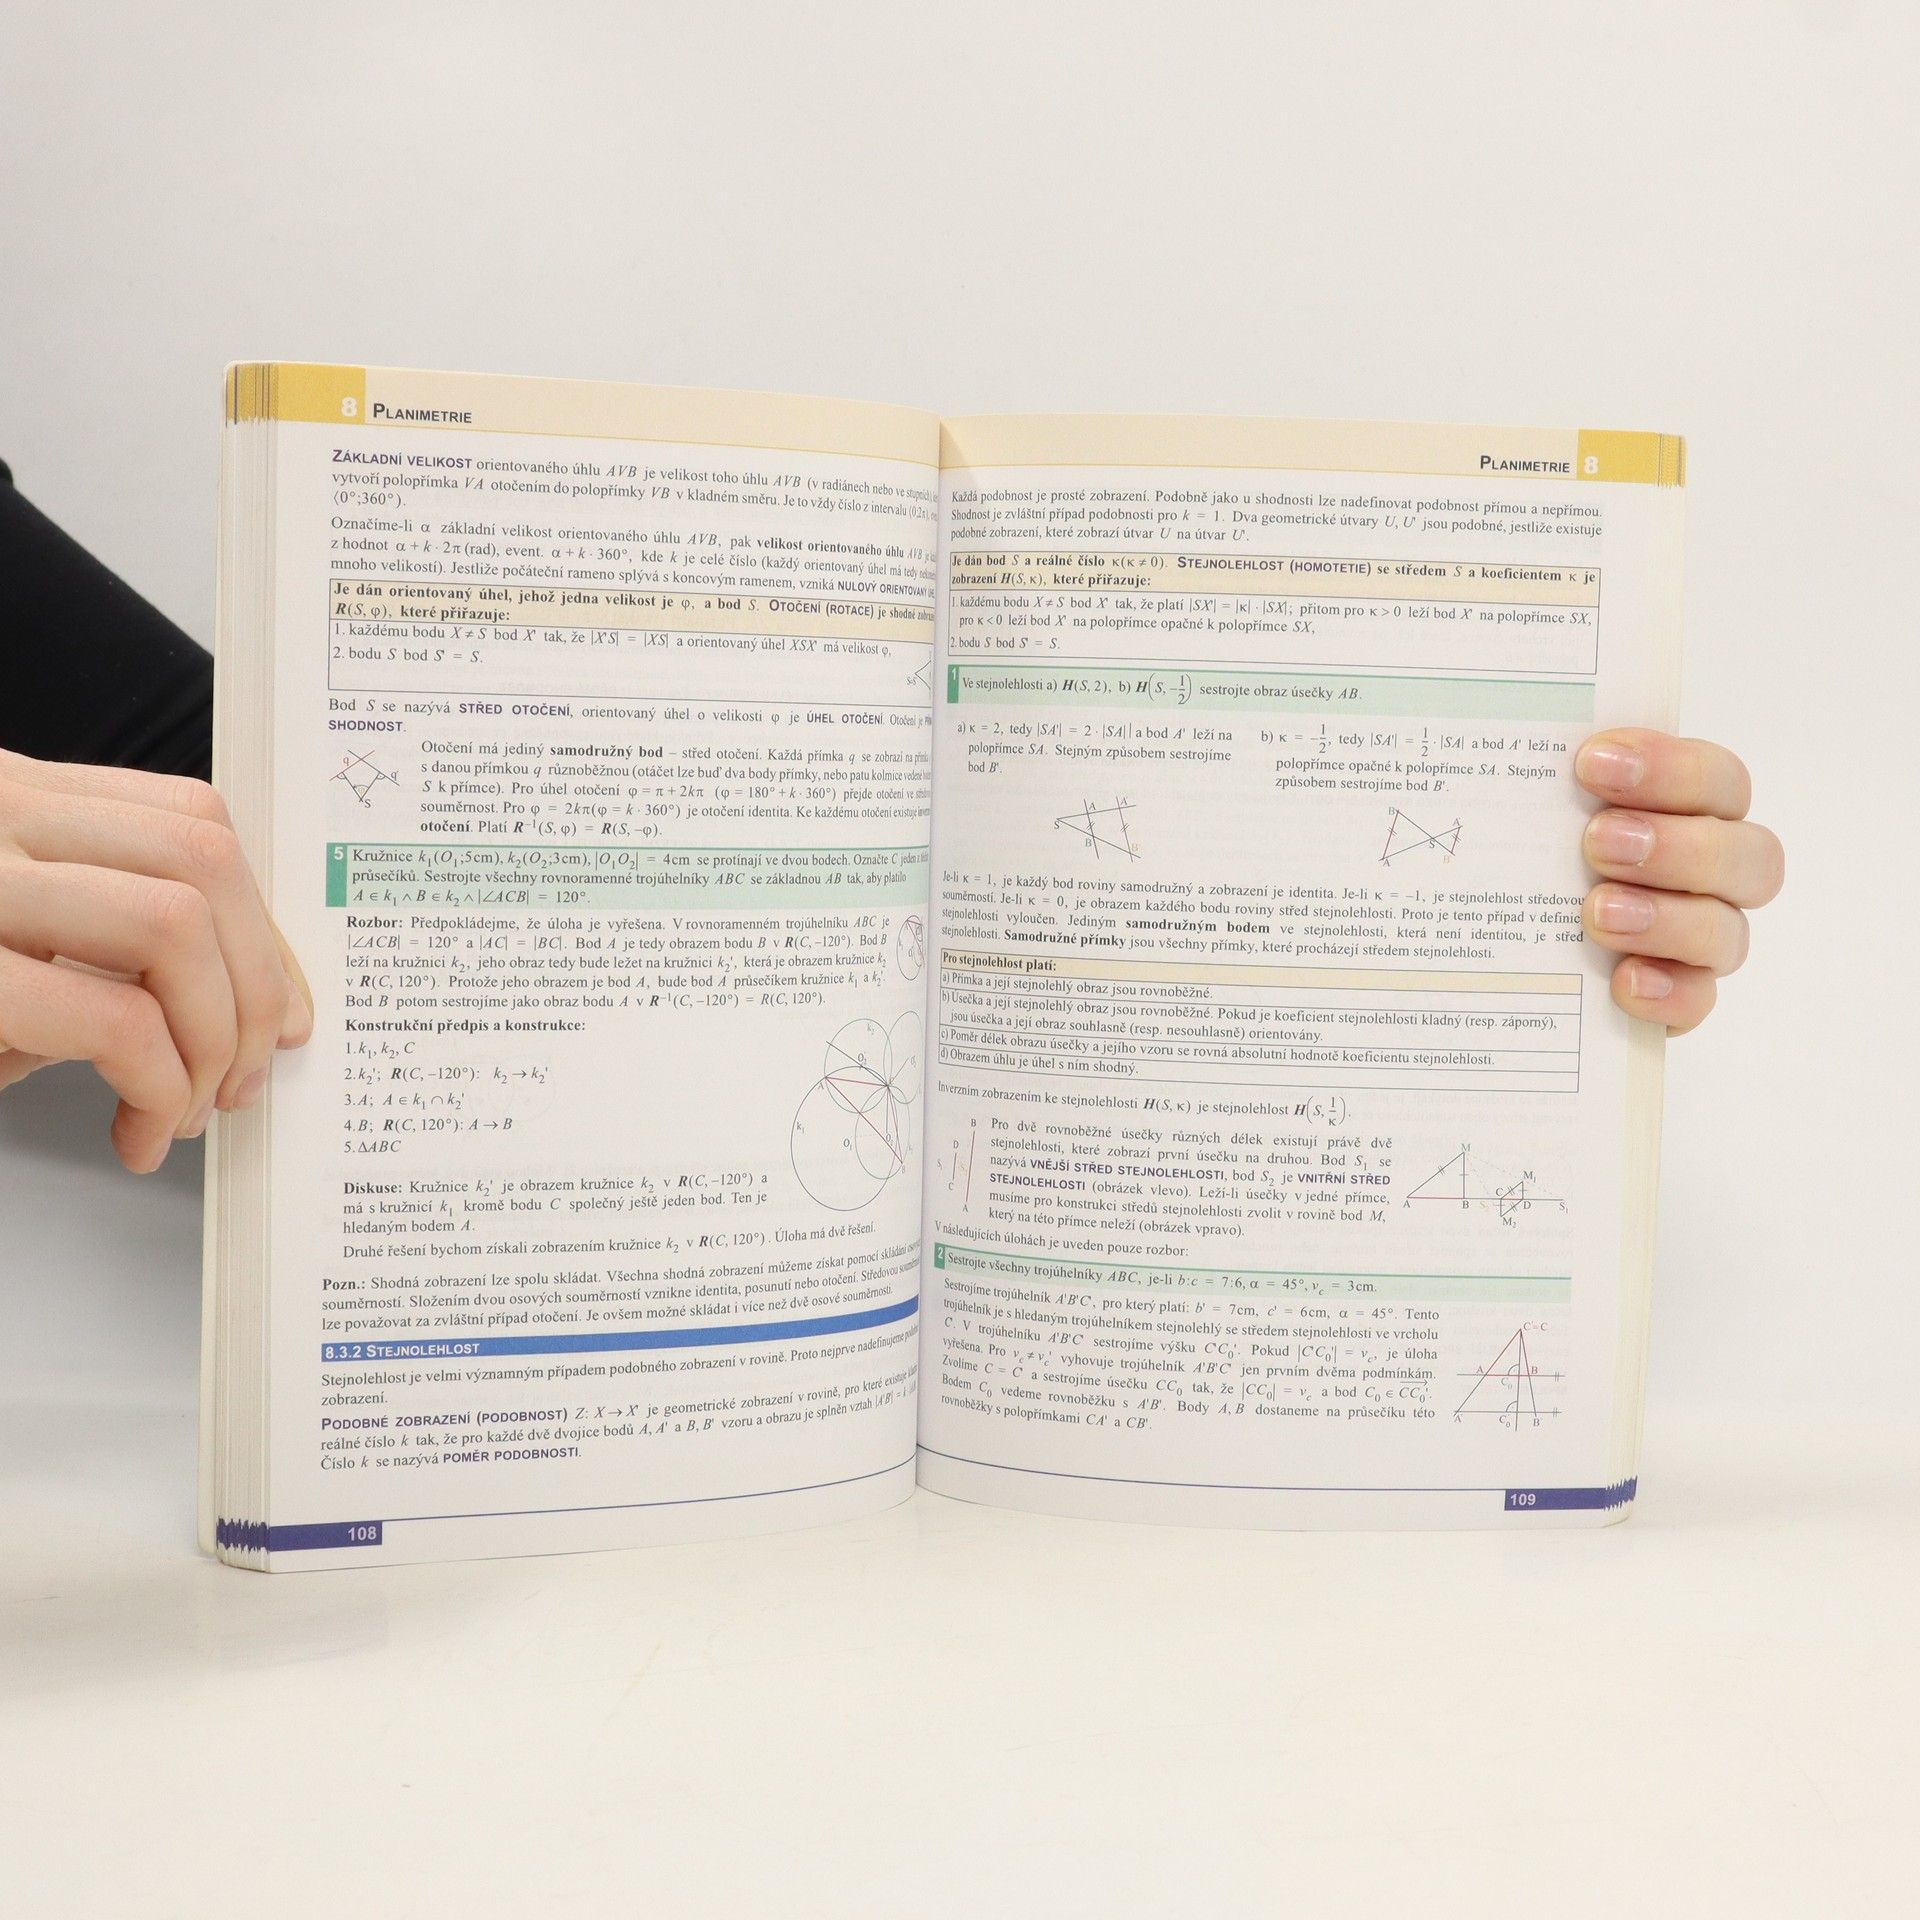 8 PLANIMETRIE
ZÁKLADNÍ VELIKOST orientovaného úhlu AVB je velikost toho úhlu AVB (v radiánech nebo ve stupních),
vytvoří polopřímka VA otočením do polopřímky VB v kladném směru. Je to vždy číslo z intervalu ⟨0;2π),
⟨0°;360°).
Označíme-li α základní velikost orientovaného úhlu AVB, pak velikost orientovaného úhlu AVB je
z hodnot α + k · 2π (rad), event. α + k · 360°, kde k je celé číslo (každý orientovaný úhel má tedy
mnoho velikostí). Jestliže počáteční rameno splývá s koncovým ramenem, vzniká NULOVÝ ORIENTOVANÝ
Je dán orientovaný úhel, jehož jedna velikost je φ, a bod S. OTOČENÍ (ROTACE) je shodné
R(S, φ), které přiřazuje:
1. každému bodu X ≠ S bod X' tak, že |X'S| = |XS| a orientovaný úhel XSX' má velikost φ,
2. bodu S bod S' = S.
S=S'
Bod S se nazývá STŘED OTOČENÍ, orientovaný úhel o velikosti φ je ÚHEL OTOČENÍ. Otočení je
SHODNOST.
Otočení má jediný samodružný bod – střed otočení. Každá přímka q se zobrazí na
s danou přímkou q různoběžnou (otáčet lze buď dva body přímky, nebo patu kolmice vedené
S k přímce). Pro úhel otočení φ = π + 2kπ (φ = 180° + k · 360°) přejde otočení ve
souměrnost. Pro φ = 2kπ(φ = k · 360°) je otočení identita. Ke každému otočení existuje
otočení. Platí R⁻¹(S, φ) = R(S, –φ).
q q' S
5 Kružnice k₁(O₁;5cm), k₂(O₂;3cm), |O₁O₂| = 4cm se protínají ve dvou bodech. Označte C jeden z
průsečíků. Sestrojte všechny rovnoramenné trojúhelníky ABC se základnou AB tak, aby platilo
A ∈ k₁ ∧ B ∈ k₂ ∧ |∠ACB| = 120°.
Rozbor: Předpokládejme, že úloha je vyřešena. V rovnoramenném trojúhelníku ABC je
|∠ACB| = 120° a |AC| = |BC|. Bod A je tedy obrazem bodu B v R(C, –120°). Bod B
leží na kružnici k₂, jeho obraz tedy bude ležet na kružnici k₂', která je obrazem kružnice k₂
v R(C, 120°). Protože jeho obrazem je bod A, bude bod A průsečíkem kružnice k₁ a k₂'.
Bod B potom sestrojíme jako obraz bodu A v R⁻¹(C, –120°) = R(C, 120°).
Konstrukční předpis a konstrukce:
1. k₁, k₂, C
2. k₂'; R(C, –120°): k₂ → k₂'
3. A; A ∈ k₁ ∩ k₂'
4. B; R(C, 120°): A → B
5. ΔABC
Diskuse: Kružnice k₂' je obrazem kružnice k₂ v R(C, –120°) a
má s kružnicí k₁ kromě bodu C společný ještě jeden bod. Ten je
hledaným bodem A.
Druhé řešení bychom získali zobrazením kružnice k₂ v R(C, 120°). Úloha má dvě řešení.
Pozn.: Shodná zobrazení lze spolu skládat. Všechna shodná zobrazení můžeme získat pomocí skládání
souměrností. Složením dvou osových souměrností vznikne identita, posunutí nebo otočení. Středovou
lze považovat za zvláštní případ otočení. Je ovšem možné skládat i více než dvě osové souměrnosti.
8.3.2 STEJNOLEHLOST
Stejnolehlost je velmi významným případem podobného zobrazení v rovině. Proto nejprve nadefinujeme
zobrazení.
PODOBNÉ ZOBRAZENÍ (PODOBNOST) Z: X → X' je geometrické zobrazení v rovině, pro které existuje
reálné číslo k tak, že pro každé dvě dvojice bodů A, A' a B, B' vzoru a obrazu je splněn vztah |A'B'| = k
Číslo k se nazývá POMĚR PODOBNOSTI.
108
PLANIMETRIE 8
Každá podobnost je prosté zobrazení. Podobně jako u shodnosti lze nadefinovat podobnost přímou a nepřímou.
Shodnost je zvláštní případ podobnosti pro k = 1. Dva geometrické útvary U, U' jsou podobné, jestliže existuje
podobné zobrazení, které zobrazí útvar U na útvar U'.
Je dán bod S a reálné číslo κ(κ ≠ 0). STEJNOLEHLOST (HOMOTETIE) se středem S a koeficientem κ je
zobrazení H(S, κ), které přiřazuje:
1. každému bodu X ≠ S bod X' tak, že platí |SX'| = |κ| · |SX|; přitom pro κ > 0 leží bod X' na polopřímce SX,
pro κ < 0 leží bod X' na polopřímce opačné k polopřímce SX,
2. bodu S bod S' = S.
1 Ve stejnolehlosti a) H(S, 2), b) H(S, –1/2) sestrojte obraz úsečky AB.
a) κ = 2, tedy |SA'| = 2 · |SA|| a bod A' leží na
polopřímce SA. Stejným způsobem sestrojíme
bod B'.
b) κ = –1/2, tedy |SA'| = 1/2 · |SA| a bod A' leží na
polopřímce opačné k polopřímce SA. Stejným
způsobem sestrojíme bod B'.
S A A' B B'
B A' S A B'
Je-li κ = 1, je každý bod roviny samodružný a zobrazení je identita. Je-li κ = –1, je stejnolehlost středovou
souměrností. Je-li κ = 0, je obrazem každého bodu roviny střed stejnolehlosti. Proto je tento případ v definic
stejnolehlosti vyloučen. Jediným samodružným bodem ve stejnolehlosti, která není identitou, je střed
stejnolehlosti. Samodružné přímky jsou všechny přímky, které procházejí středem stejnolehlosti.
Pro stejnolehlost platí:
a) Přímka a její stejnolehlý obraz jsou rovnoběžné.
b) Úsečka a její stejnolehlý obraz jsou rovnoběžné. Pokud je koeficient stejnolehlosti kladný (resp. záporný),
jsou úsečka a její obraz souhlasně (resp. nesouhlasně) orientovány.
c) Poměr délek obrazu úsečky a jejího vzoru se rovná absolutní hodnotě koeficientu stejnolehlosti.
d) Obrazem úhlu je úhel s ním shodný.
Inverzním zobrazením ke stejnolehlosti H(S, κ) je stejnolehlost H(S, 1/κ).
Pro dvě rovnoběžné úsečky různých délek existují právě dvě
stejnolehlosti, které zobrazí první úsečku na druhou. Bod S₁ se
nazývá VNĚJŠÍ STŘED STEJNOLEHLOSTI, bod S₂ je VNITŘNÍ STŘED
STEJNOLEHLOSTI (obrázek vlevo). Leží-li úsečky v jedné přímce,
musíme pro konstrukci středů stejnolehlosti zvolit v rovině bod M,
který na této přímce neleží (obrázek vpravo).
B D C A
M M₁ A B C D S₁ M₂
V následujících úlohách je uveden pouze rozbor:
2 Sestrojte všechny trojúhelníky ABC, je-li b:c = 7:6, α = 45°, v_c = 3cm.
Sestrojíme trojúhelník A'B'C', pro který platí: b' = 7cm, c' = 6cm, α = 45°. Tento
trojúhelník je s hledaným trojúhelníkem stejnolehlý se středem stejnolehlosti ve vrcholu
C. V trojúhelníku A'B'C' sestrojíme výšku C'C₀'. Pokud |C'C₀'| = v_c, je úloha
vyřešena. Pro v_c ≠ v_c' vyhovuje trojúhelník A'B'C' jen prvním dvěma podmínkám.
Zvolíme C = C' a sestrojíme úsečku CC₀ tak, že |CC₀| = v_c a bod C₀ ∈ CC₀'.
Bodem C₀ vedeme rovnoběžku s A'B'. Body A, B dostaneme na průsečíku této
rovnoběžky s polopřímkami CA' a CB'.
C'=C
A B
C₀
A' C₀' B'
109